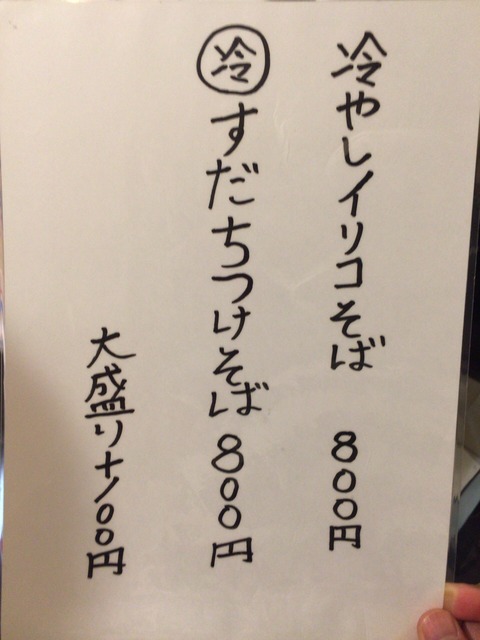 冷やしイリコそば 800円
㊎すだちつけそば 800円
大盛り+100円